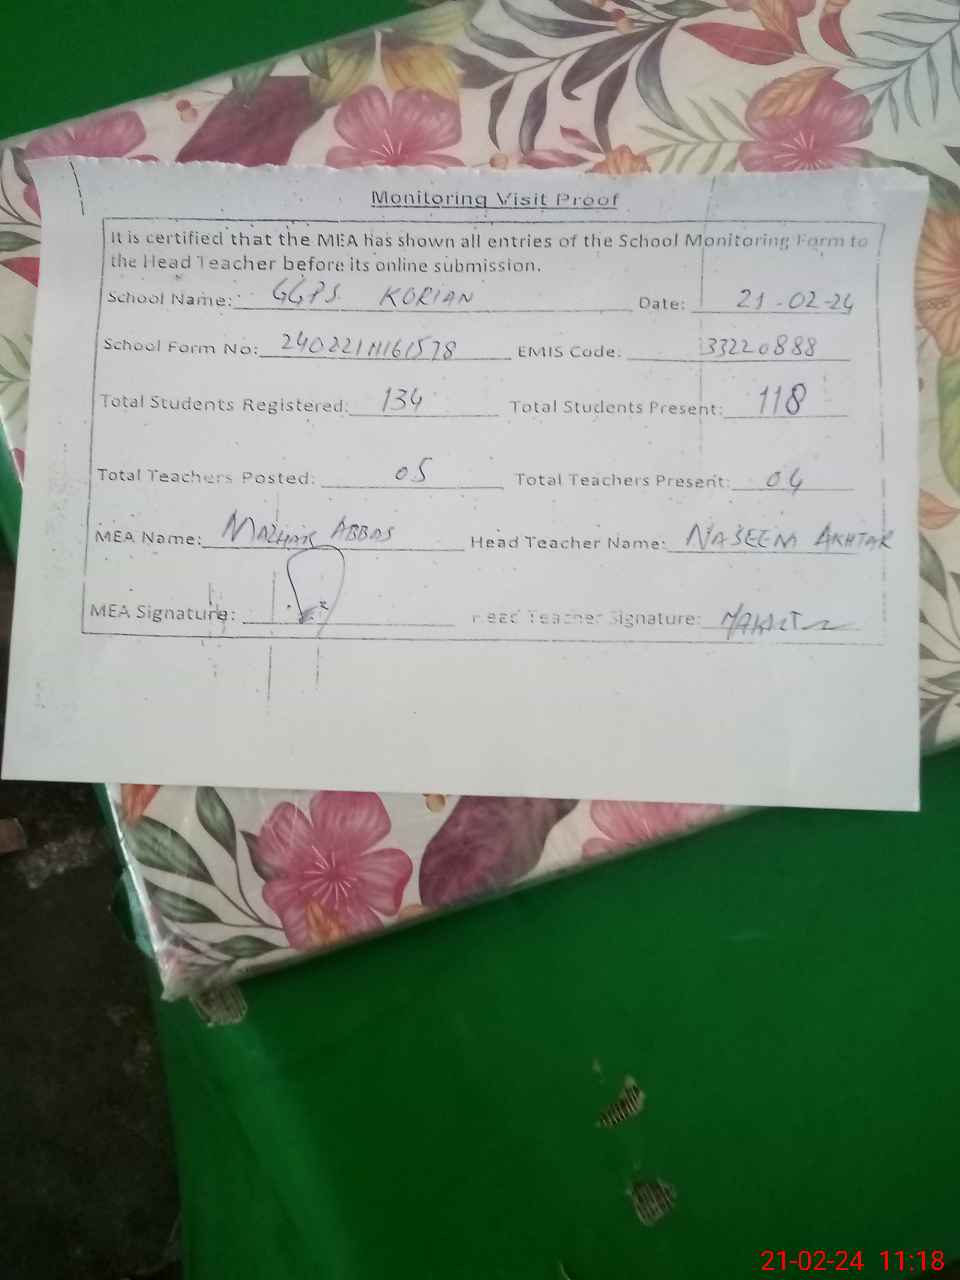 Monitoring Visit Proof
It is certified that the MEA has shown all entries of the School Monitoring Form to
the Head Teacher before its online submission.
School Name: GGPS KORIAN Date: 21-02-24
School Form No: EMIS Code: 33220888
Total Students Registered: 134 Total Students Present: 118
Total Teachers Posted: 05 Total Teachers Present: 04
MEA Name: MAZHAR ABBAS Head Teacher Name: NASEEM AKHTAR
MEA Signature: Head Teacher Signature:
21-02-24 11:18